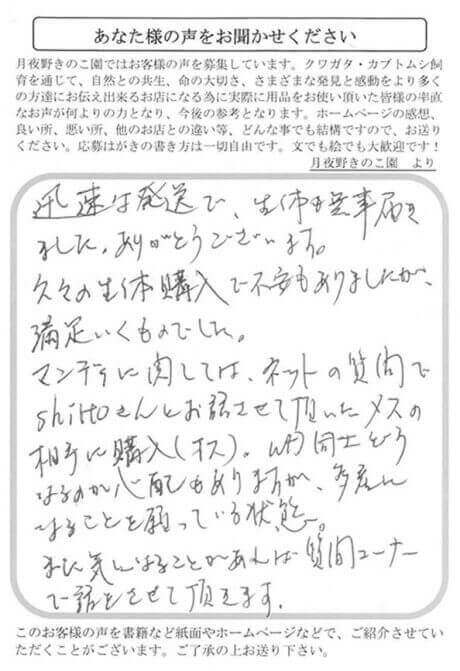 あなた様の声をお聞かせください
月夜野きのこ園ではお客様の声を募集しています。クワガタ・カブトムシ飼
育を通じて、自然との共生、命の大切さ、さまざまな発見と感動をより多く
の方達にお伝え出来るお店になる為に実際に用品をお使い頂いた皆様の率直
なお声が何よりの力となり、今後の参考となります。ホームページの感想、
良い所、悪い所、他のお店との違い等、どんな事でも結構ですので、お送り
ください。応募はがきの書き方は一切自由です。文でも絵でも大歓迎です！
月夜野きのこ園　より
迅速な発送で、生体も無事届き
ました。ありがとうございます。
久々の生体購入で不安もありましたが、
満足いくものでした。
マンディに関しては、ネットの質問で
shihoさんとお話させて頂いたメスの
相手に購入(オス)。WD同士どう
なるのか心配もありますが、多産に
なることを願っている状態。
また気になることがあれば質問コーナー
で話をさせて頂きます。
このお客様の声を書籍など紙面やホームページなどで、ご紹介させてい
ただくことがございます。ご了承の上お送り下さい。